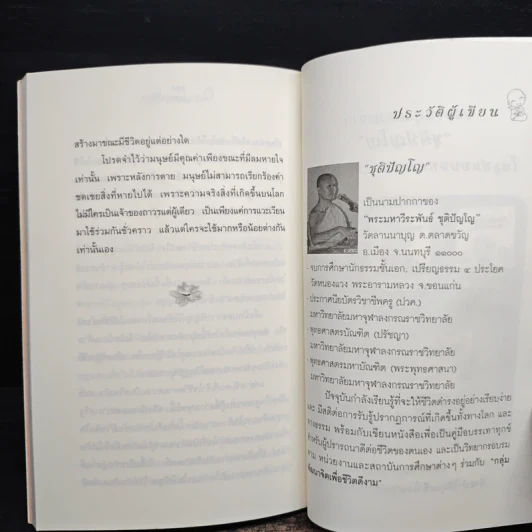 สร้างมาขณะมีชีวิตอยู่แต่อย่างใด
โปรดจำไว้ว่ามนุษย์มีคุณค่าเพียงขณะที่มีลมหายใจ
เท่านั้น เพราะหลังการตาย มนุษย์ไม่สามารถเรียกร้องค่า
ชดเชยสิ่งที่หายไปได้ เพราะความจริงสิ่งที่เกิดขึ้นบนโลก
ไม่มีใครเป็นเจ้าของถาวรแต่ผู้เดียว เป็นเพียงแค่การแวะเวียน
มาใช้ร่วมกันชั่วคราว แล้วแต่ใครจะใช้มากหรือน้อยต่างกัน
เท่านั้นเอง
ประวัติผู้เขียน
"ชุติปัญโญ"
เป็นนามปากกาของ
"พระมหาวีระพันธ์ ชุติปัญโญ"
วัดลานนาบุญ ต.ตลาดขวัญ
อ.เมือง จ.นนทบุรี ๑๑๐๐๐
- จบการศึกษานักธรรมชั้นเอก, เปรียญธรรม ๔ ประโยค
วัดหนองแวง พระอารามหลวง จ.ขอนแก่น
- ประกาศนียบัตรวิชาชีพครู (ปวค.)
มหาวิทยาลัยมหาจุฬาลงกรณราชวิทยาลัย
พุทธศาสตรบัณฑิต (ปรัชญา)
มหาวิทยาลัยมหาจุฬาลงกรณราชวิทยาลัย
พุทธศาสตรมหาบัณฑิต (พระพุทธศาสนา)
มหาวิทยาลัยมหาจุฬาลงกรณราชวิทยาลัย
ปัจจุบันกำลังเรียนรู้ที่จะให้ชีวิตดำรงอยู่อย่างเรียบง่าย
และ มีสติต่อการรับรู้ปรากฏการณ์ที่เกิดขึ้นทั้งทางโลก และ
ทางธรรม พร้อมกับเขียนหนังสือเพื่อเป็นคู่มือบรรเทาทุกข์
สำหรับผู้ปรารถนาดีต่อชีวิตของตนเอง และเป็นวิทยากรอบรม
ตาม หน่วยงานและสถาบันการศึกษาต่างๆ ร่วมกับ "กลุ่ม
พัฒนาจิตเพื่อชีวิตดีงาม"